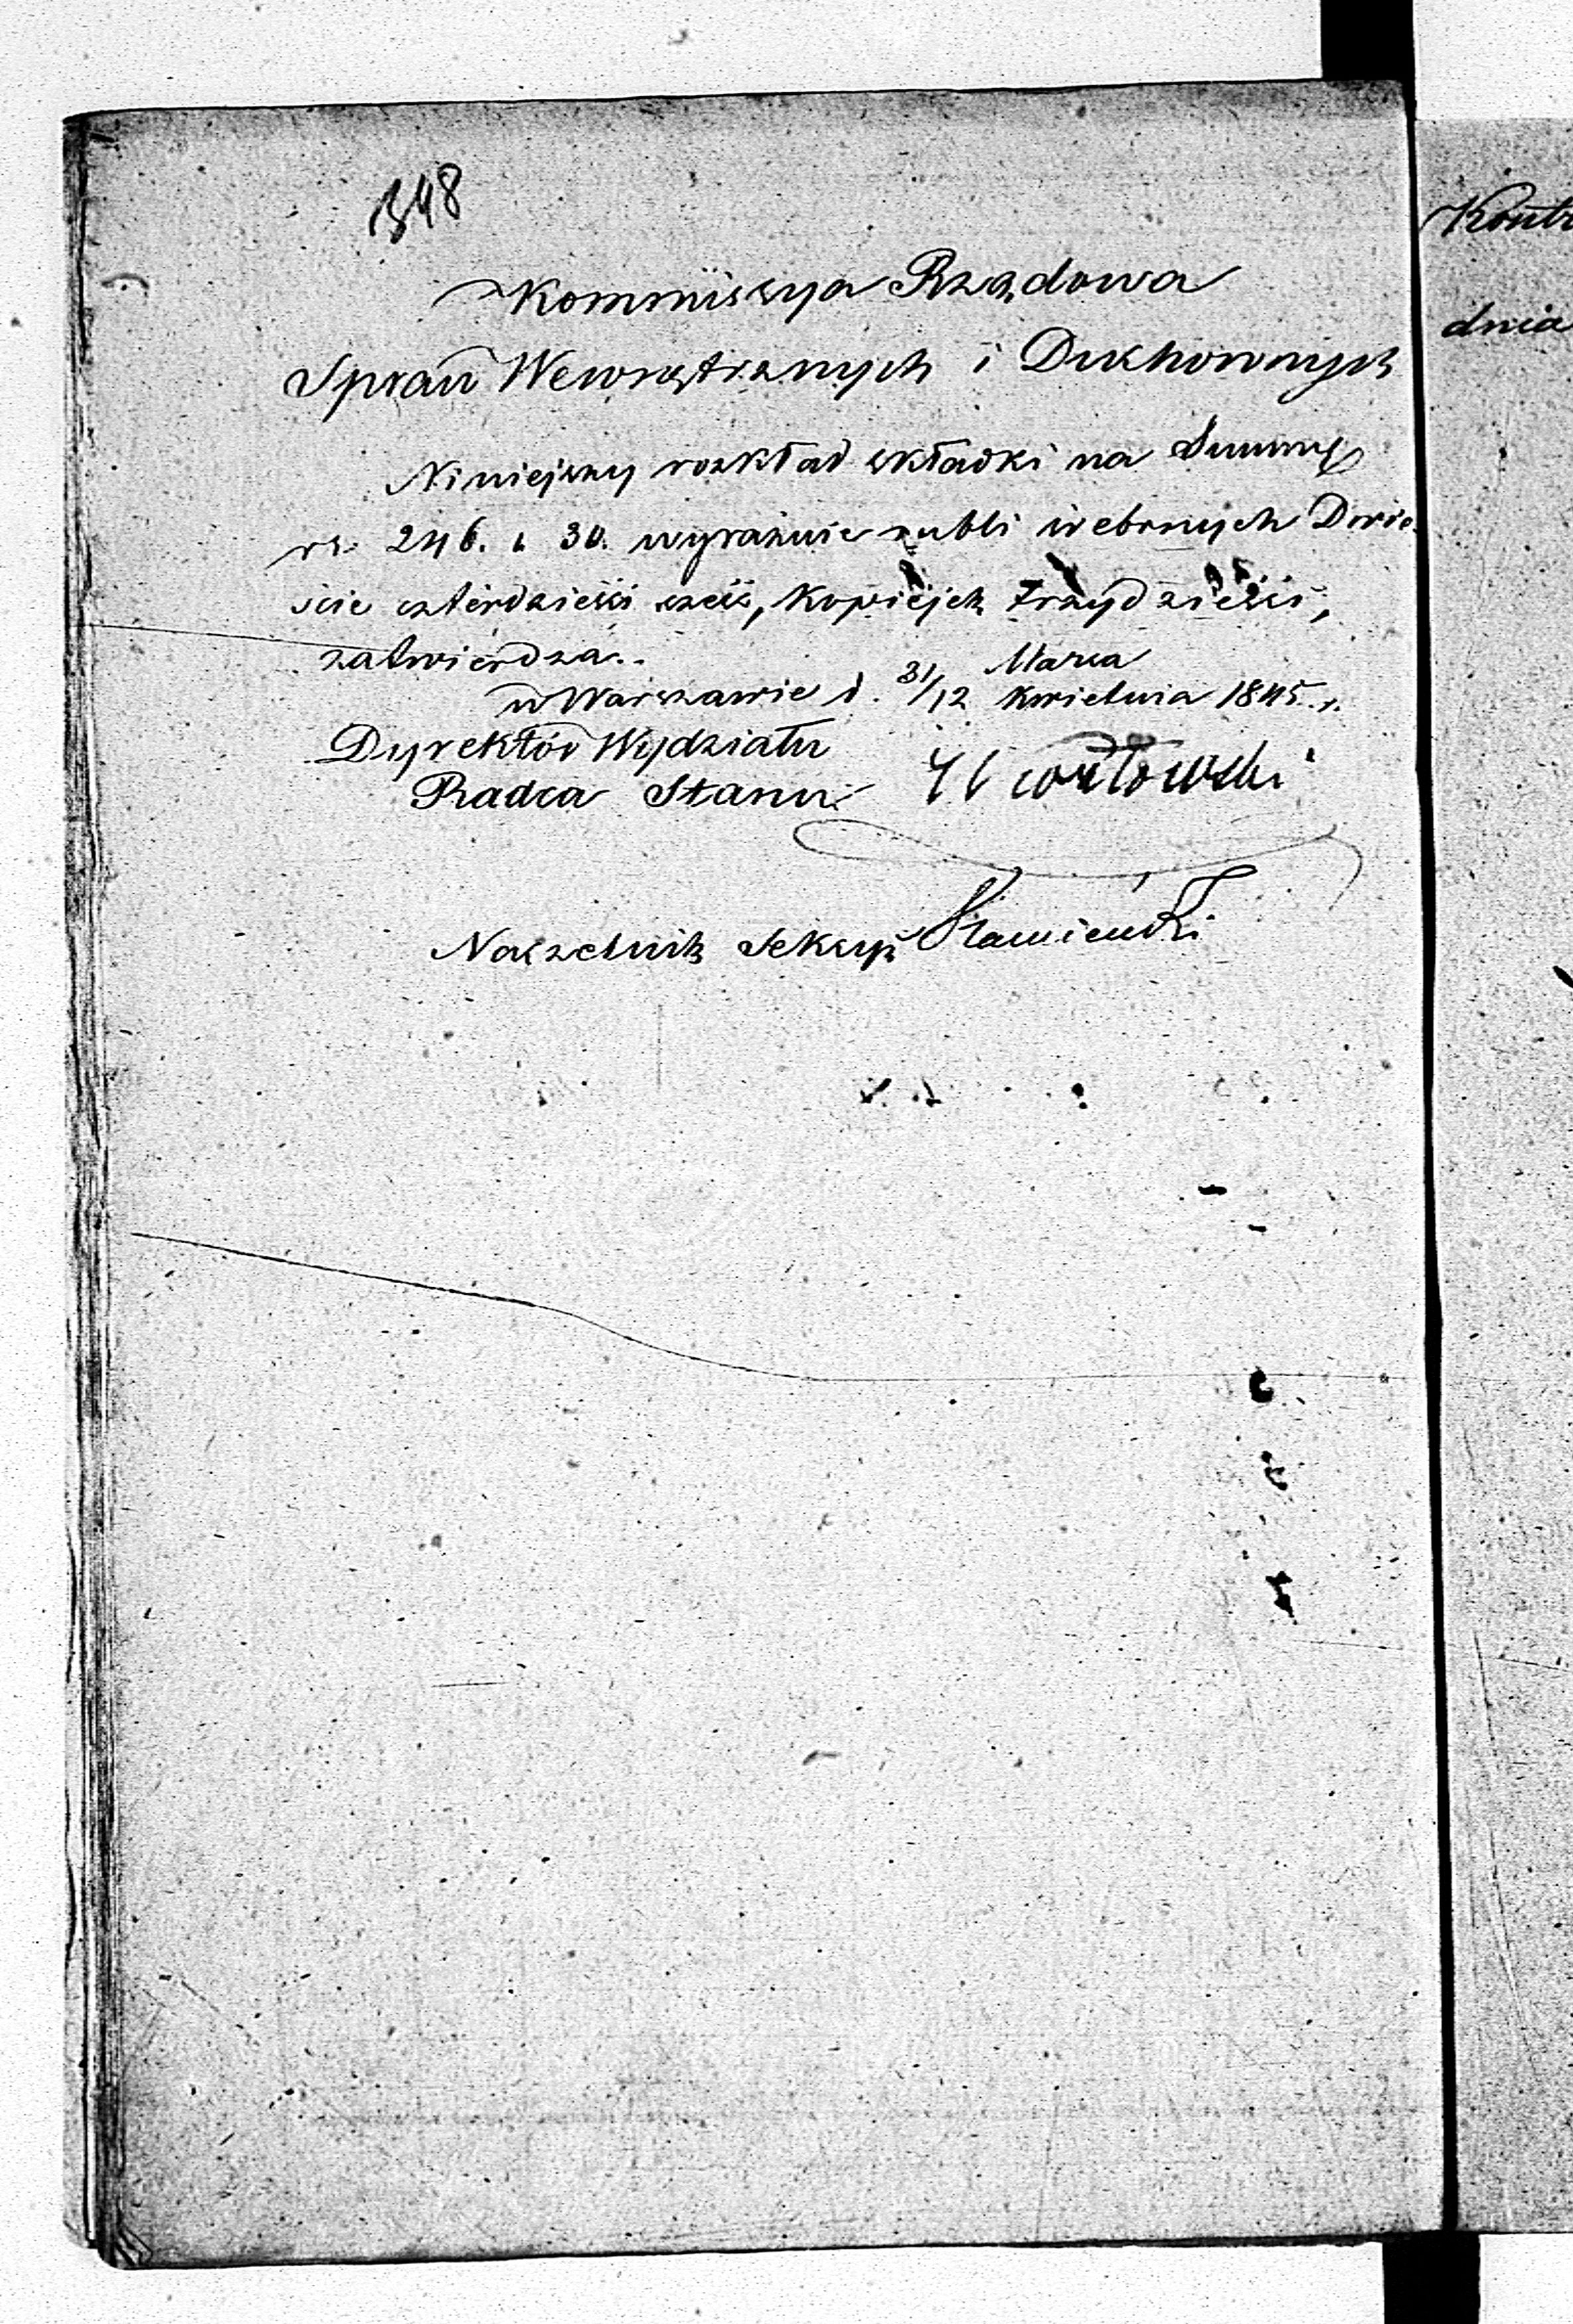 348
Kommissya Rządowa
Spraw Wewnętrznych i Duchownych
Niniejszy rozkład składki na Summę
rs. 246. k 30. wyraźnie rubli srebrnych Dwie
ście czterdzieści sześć, kopiejek trzydzieści,
zatwierdza.
w Warszawie d. 31/12 Marca
Kwietnia 1845. r.
Dyrektor Wydziału
Radca Stanu
Naczelnik Sekcyi
dnia